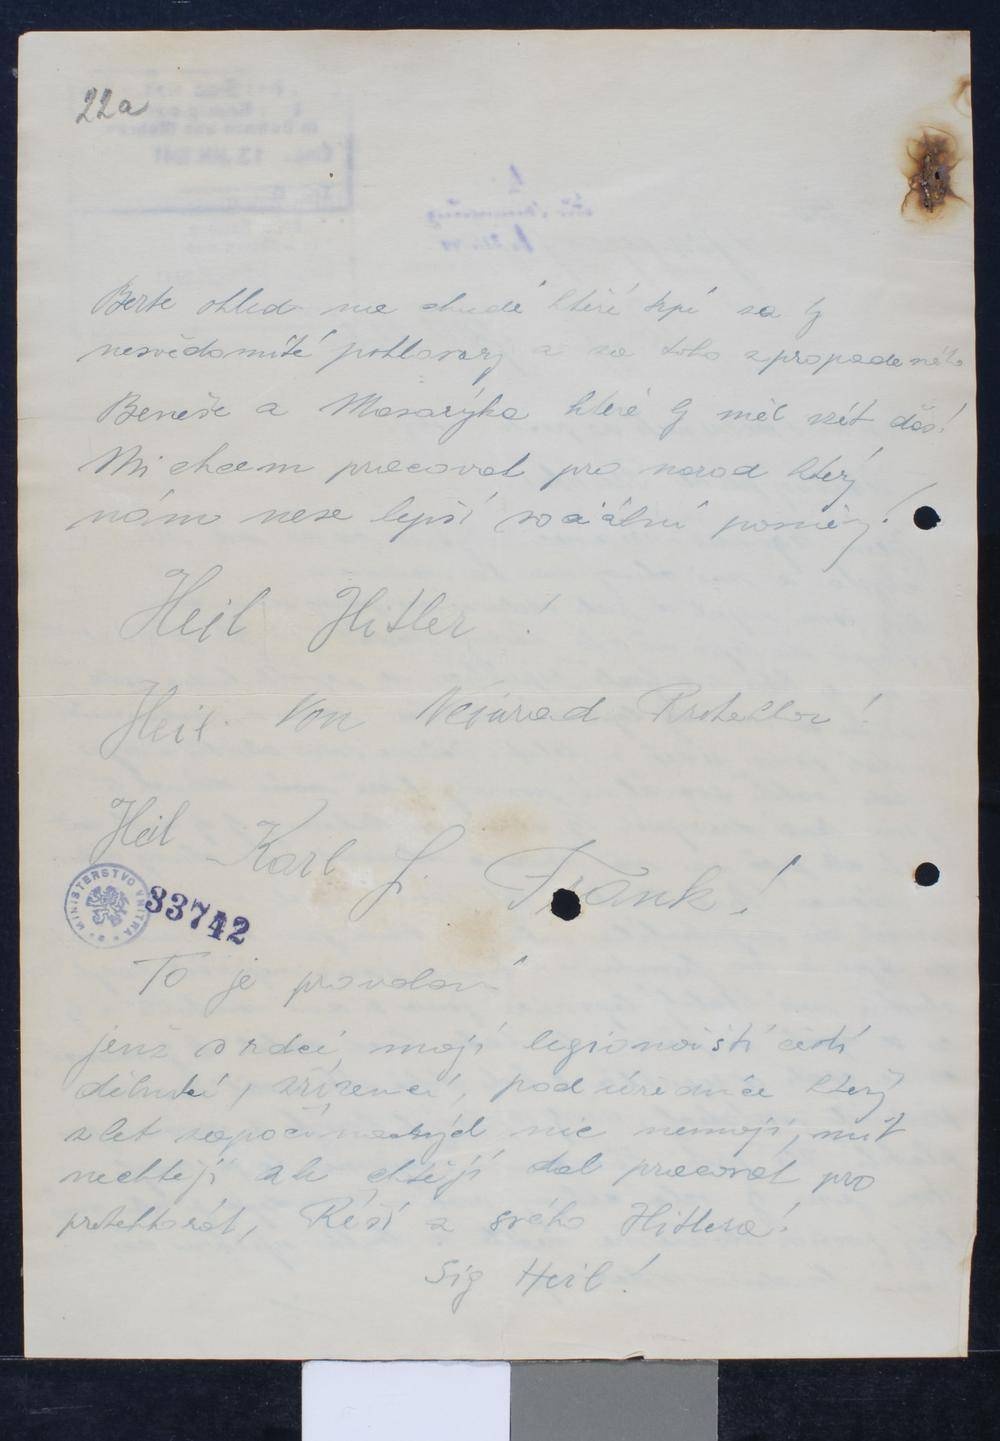 22a
Berte ohled na chudé které trpí za ty
nesvědomité pohlavary a za toho zpropadeného
Beneše a Masarýka které by měl vzít ďas!
Mi chcem pracovat pro narod který
nám nese lepší sociální poměry!
Heil Hitler!
Heil Von Neiurad Protektor!
Heil Karl J. Frank!
MINISTERSTVO VNITRA
33742
To je provolaní
jenž srdcí mají legionářští čeští
dělníci, zřízenci, pod úředníce který
z let započínavých nic nemají, mít
nechtějí ale chtějí dál pracovat pro
protektorát, Řéší a svého Hitlera!
Sig Heil!